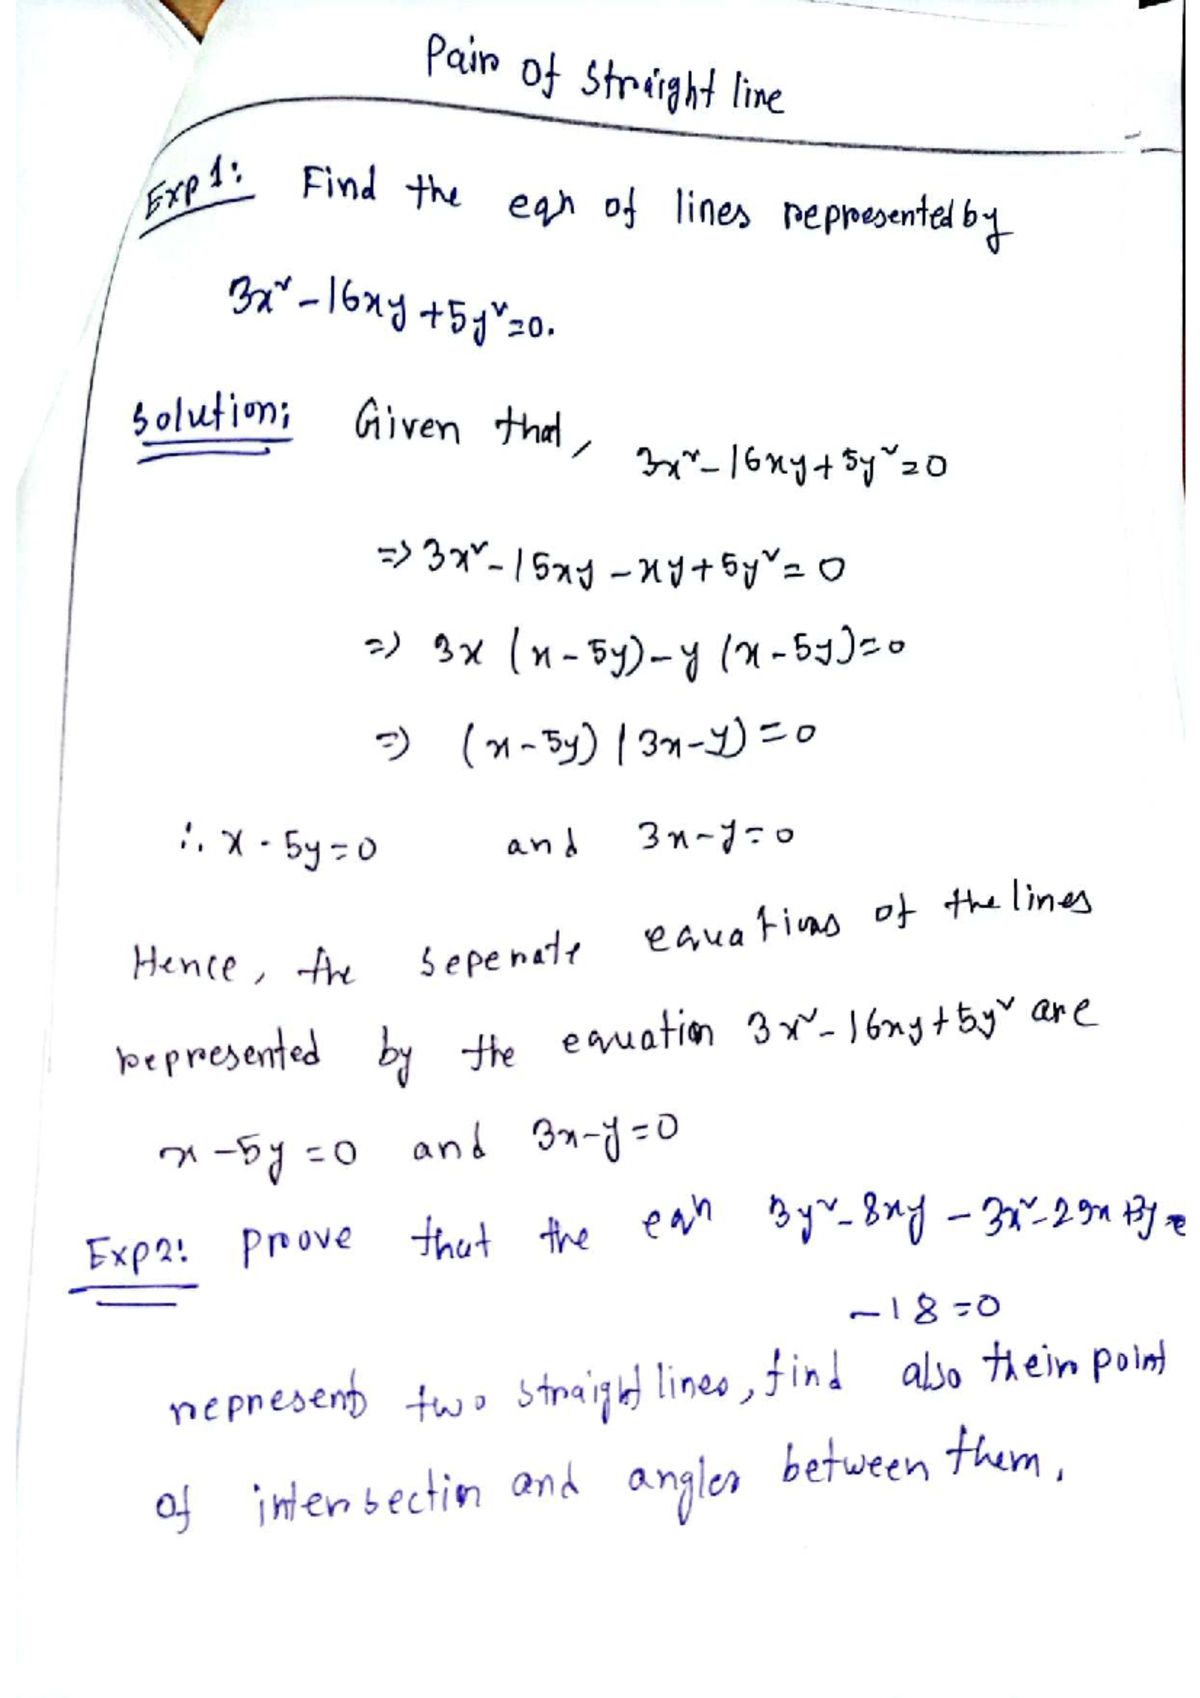 Pair of straight line
Exp 1: Find the eqn of lines represented by
3x² - 16xy + 5y² = 0.
Solution: Given that, 3x² - 16xy + 5y² = 0
=> 3x² - 15xy - xy + 5y² = 0
=> 3x (x - 5y) - y (x - 5y) = 0
=> (x - 5y) (3x - y) = 0
∴ x - 5y = 0 and 3x - y = 0
Hence, the seperate equations of the lines
represented by the equation 3x² - 16xy + 5y² are
x - 5y = 0 and 3x - y = 0
Exp 2: Prove that the eqn 3y² - 8xy - 3x² - 29x + 3y
- 18 = 0
represents two straight lines, find also their point
of intersection and angles between them.